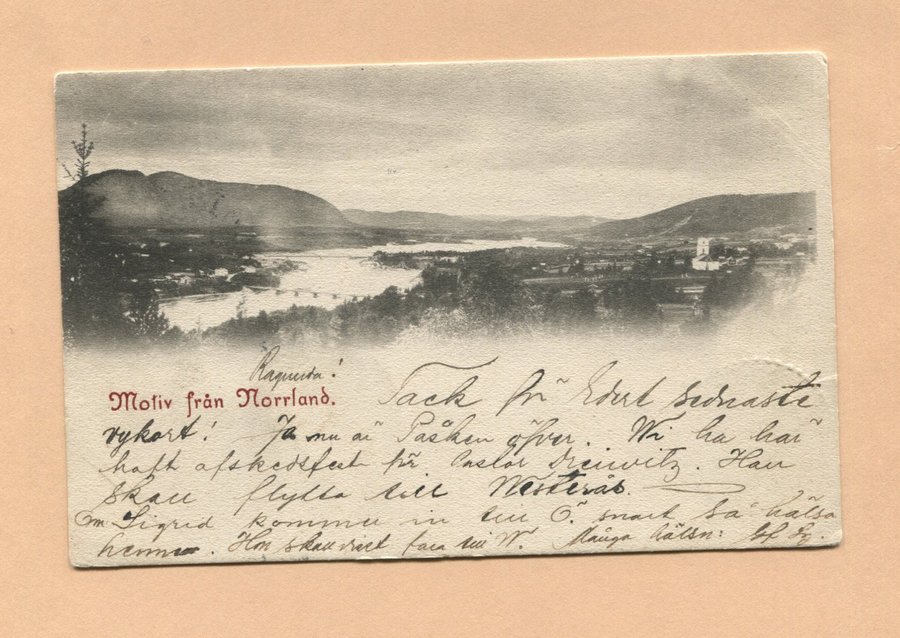 Ragunda!
Motiv från Norrland.
Tack för Edert sednaste
vykort! Ja nu är Påsken öfver. Wi ha här
haft afskedsfest för Pastor Dreiwitz. Han
skall flytta till Westerås.
Om Sigrid kommer in till Ö. snart så hälsa
henne. Hon skall visst fara till W. Många hälsn: